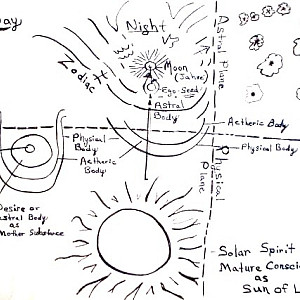 Day
Night
Vs
Zodiac
Moon
(Jahve)
Ego-Seed
Astral
Body
Astral Plane
Physical
Plane
Aetheric Body
Physical Body
Physical
Body
Aetheric
Body
Desire or
Astral Body
as
Mother Substance
Solar Spirit
Mature Consci
as
Sun of L